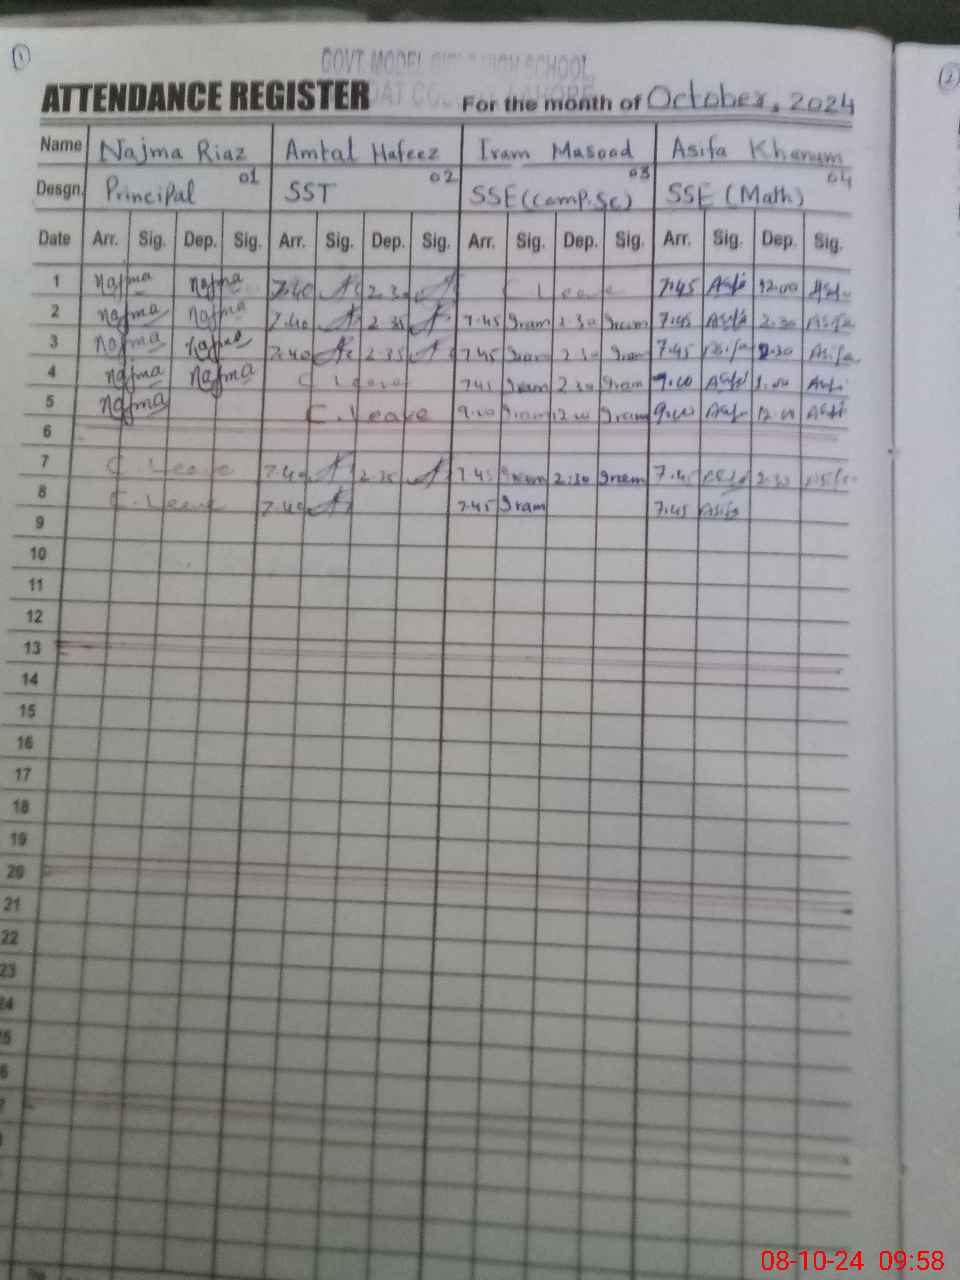 1
GOVT. MODEL GIRLS HIGH SCHOOL
ATTENDANCE REGISTER For the month of October, 2024
2
Name Najma Riaz Amtal Hafeez Iram Masood Asifa Khanum
Desgn. Principal 01 SST 02 SSE (Comp.Sc) 03 SSE (Math) 04
Date Arr. Sig. Dep. Sig. Arr. Sig. Dep. Sig. Arr. Sig. Dep. Sig. Arr. Sig. Dep. Sig.
1 Najma Najma 7.40 C Leave 7.45 Asifa 12.00
2 Najma Najma 7.40 2 35 7.45 Iram 2 30 Iram 7.45 Asifa 2.30 Asifa
3 Najma Najma 7.40 2.35 7.45 Iram 2 30 Iram 7.45 Asifa 2.30 Asifa
4 Najma Najma C Leave 7.45 Iram 2.30 Iram Asifa
5 Najma C. Leave 9.00 Iram 12.00 Iram 9.00 12.00
6
7 C. Leave 7.40 2.35 7.45 Iram 2:30 Iram 7.45 2.30
8 C. Leave 7.40 7.45 Iram 7.45 Asifa
9
10
11
12
13
14
15
16
17
18
19
20
21
22
23
08-10-24 09:58